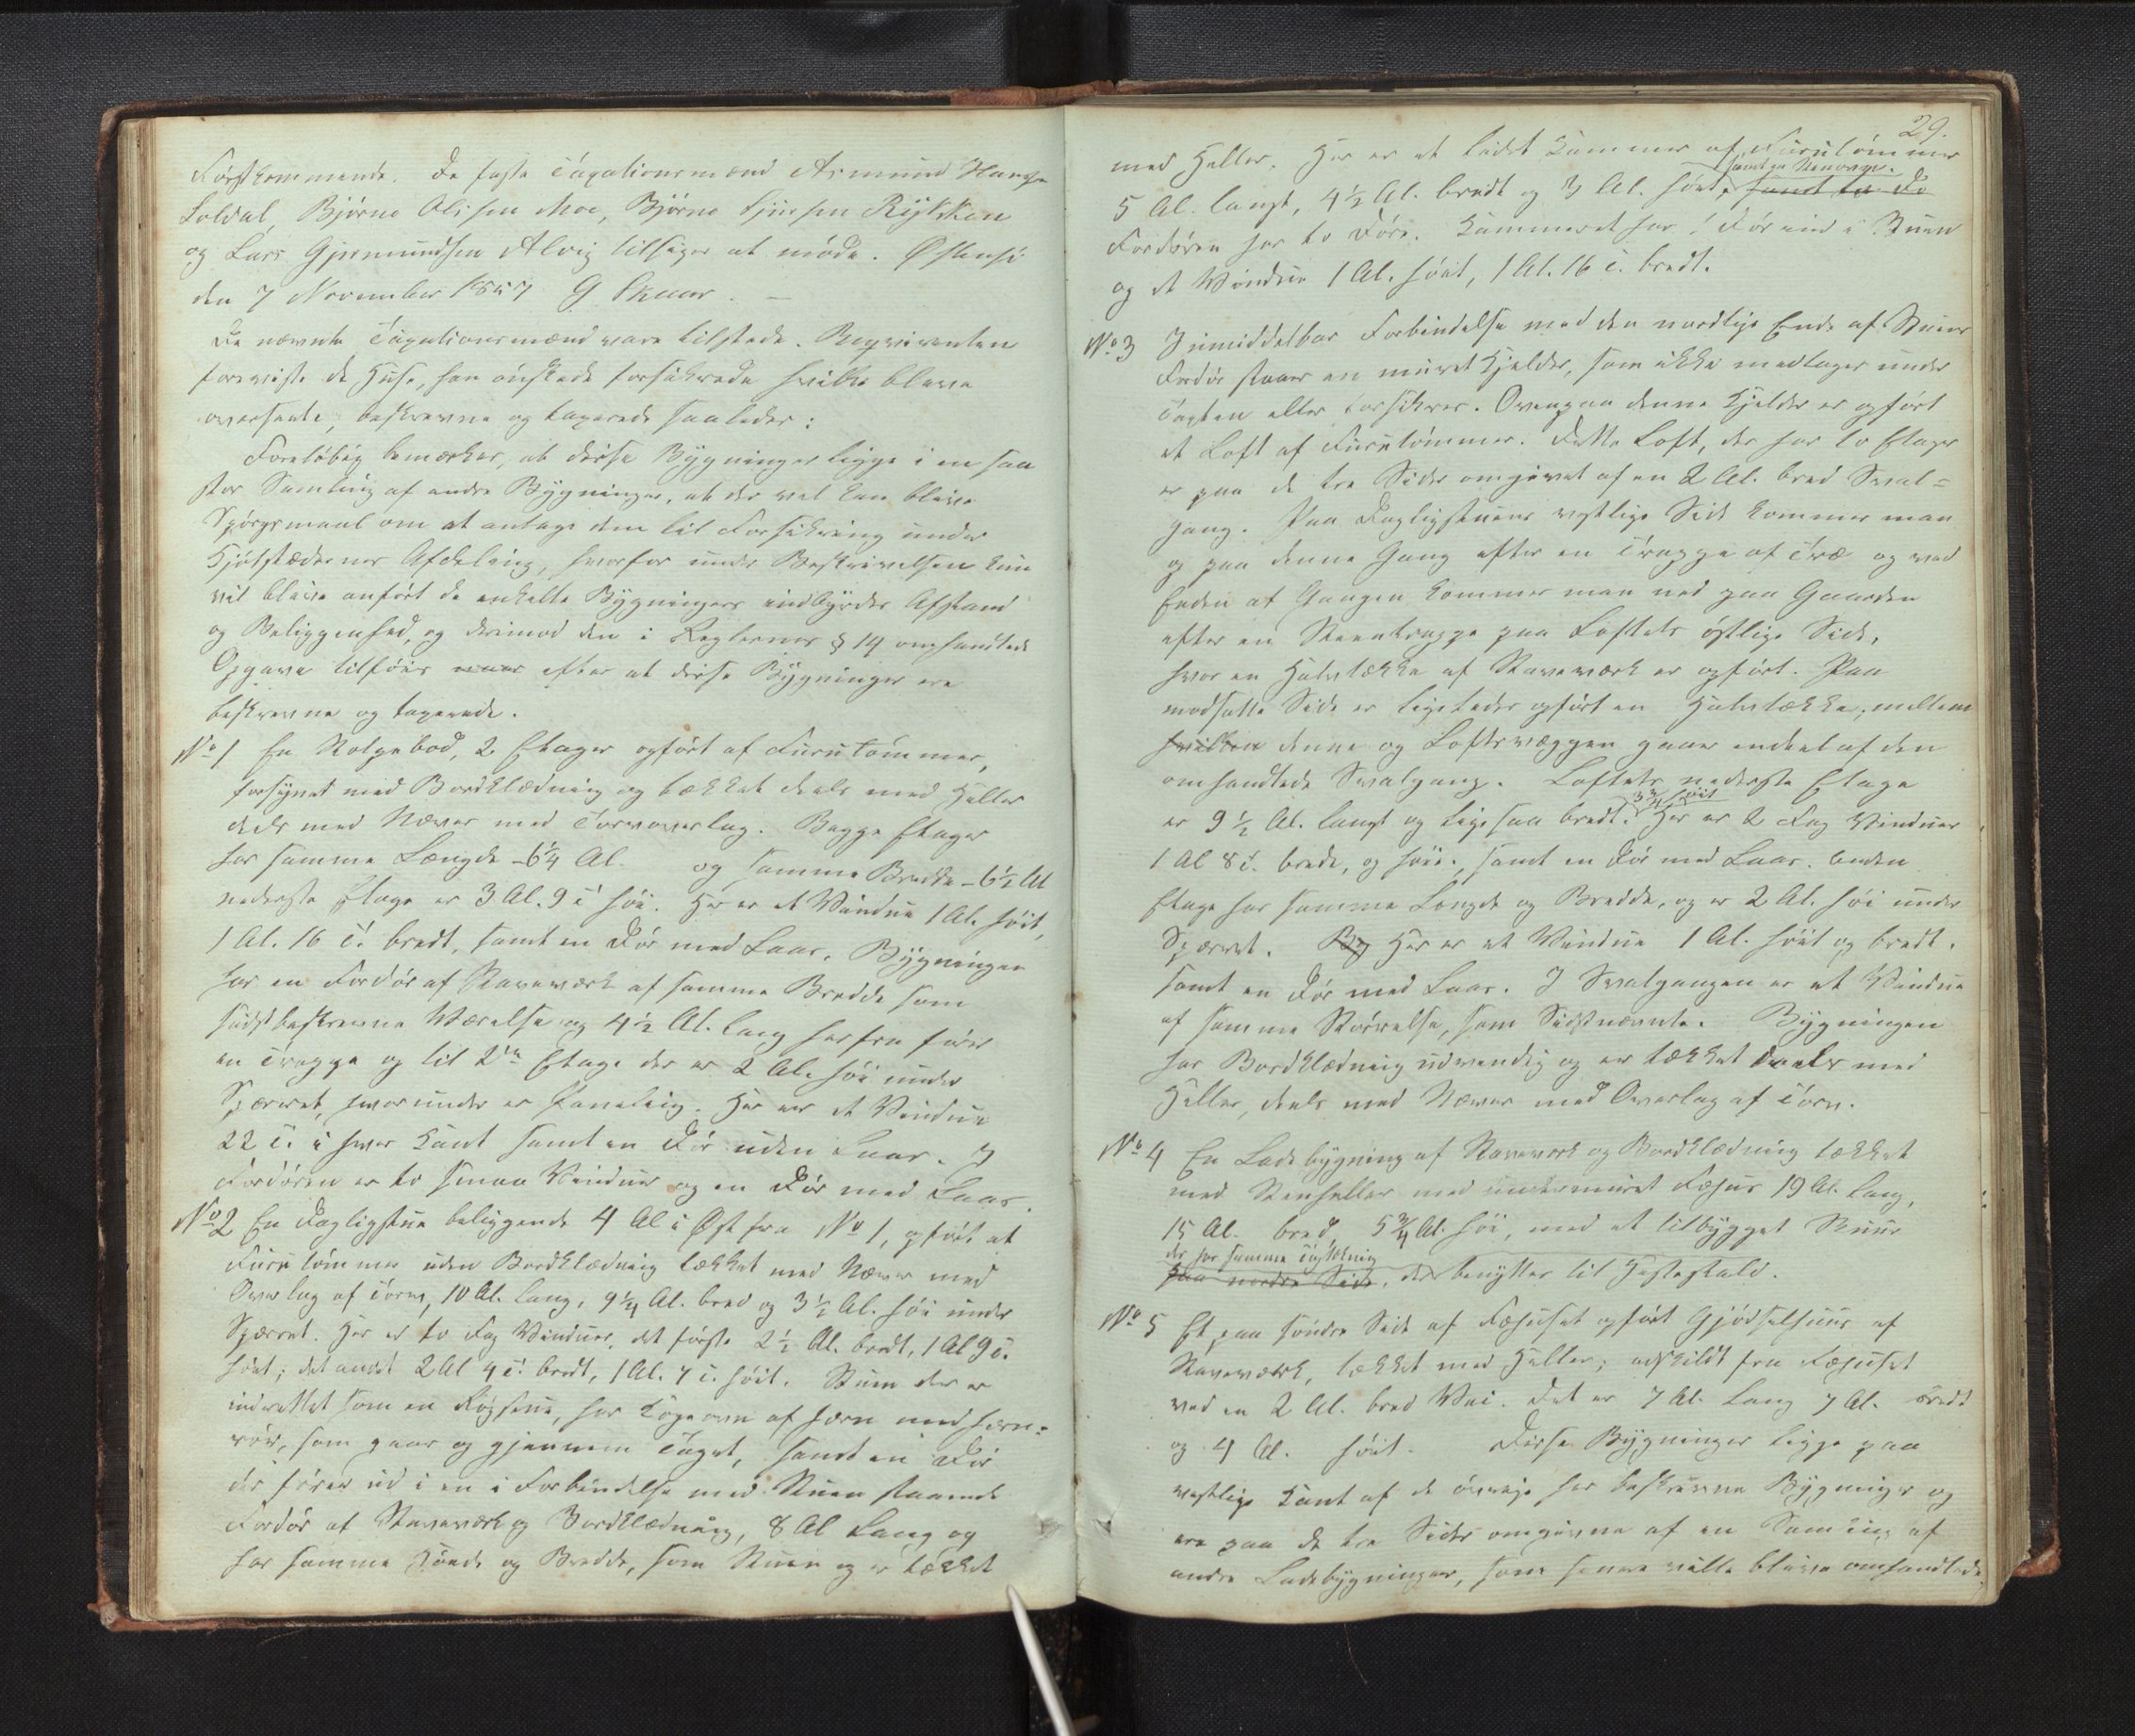 Førstkommende. De faste Taxationsmænd Asmund
Soldal, Bjørne Olsen Moe, Bjørne Sjursen Rykken
og Lars Gjermundsen Alvig tilsiges at møde. Østensø
den 7 November 1857 G Skaar. —
De nævnte Taxationsmænd vare tilstede. Reqvirenten
foreviste de Huse, han ønskede forsikrede hvilke bleve
overseete, beskrevne og taxerede saaledes:
Foreløbig bemærkes, at disse Bygninger ligge i en saa
stor Samling af andre Bygninger, at der vel kan blive
Spørgsmaal om at antage dem til Forsikring under
Kjøbstædernes Afdeling, hvorfor under Beskrivelsen kun
vil blive anført de enkelte Bygningers indbyrdes Afstand
og Beliggenhed, og derimod den i Reglernes § 14 omhandlede
Opgave tilføies efter at disse Bygninger ere
beskrevne og taxerede.
No 1 En Stolpebod, 2 Etager opført af Furutømmer,
forsynet med Bordklædning og tækket deels med Heller
dels med Næver med Torvoverlag. Begge Etager
har samme Længde - 6 1/4 Al. og samme Bredde - 6 1/2 Al
nederste Etage er 3 Al. 9 T. høi. Her er et Vindue 1 Al. høit,
1 Al. 16 T. bredt, samt en Dør med Laas. Bygningen
har en Fordør af Staveværk af samme Bredde som
sidstbeskrevne Værelse og 4 1/2 Al. lang herfra fører
en Trappe op til 2den Etage der er 2 Al. høi under
Sperret, hvorunder er Paneling. Her er et Vindue
22 T. i hver Kant samt en Dør uden Laas. I
Fordøren er to smaa Vinduer og en Dør med Laas.
No 2 En Dagligstue beliggende 4 Al i Øst fra No 1, opført af
Furutømmer uden Bordklædning tækket med Næver med
Overlag af Torv, 10 Al. lang, 9 1/4 Al. bred og 3 1/2 Al. høi under
Sperret. Her er to Fag Vinduer, det første 2 1/2 Al. bredt, 1 Al 9 T.
høit; det andet 2 Al 4 T. bredt, 1 Al. 7 T. høit. Stuen der er
indrettet som en Røgstue, har Kogeovn af Jern med Jern-
rør, som gaar op gjennem Taget, samt en Dør
der fører ud i en i Forbindelse med Stuen staaende
Fordør af Staveværk og Bordklædning, 8 Al lang og
har samme Høide og Bredde, som Stuen og er tækket
29.
med Heller. Her er et lidet Kammer af Furutømmer
samt en Stenovn.
5 Al. langt, 4 1/2 Al. bredt og 3 Al. høit, samt to Dø
Fordøren har to Døre. Kammeret har 1 Dør ind i Stuen
og et Vindue 1 Al. høit, 1 Al. 16 T. bredt.
No 3 I umiddelbar Forbindelse med den nordlige Ende af Stuens
Fordør staaer en muret Kjelder, som ikke medtages under
Taxten eller forsikres. Ovenpaa denne Kjelder er opført
et Loft af Furutømmer. Dette Loft, der har to Etager
er paa de tre Sider omgivet af en 2 Al. bred Sval-
gang. Paa Dagligstuens vestlige Side kommer man
op paa denne Gang efter en Trappe af Træ og ved
Enden af Gangen kommer man ned paa Gaarden
efter en Steentrappe paa Loftets østlige Side,
hvor en Halvtække af Staveværk er opført. Paa
modsatte Side er ligeledes opført en Halvtække, mellem
hvilken denne og Loftsvæggen gaaer endeel af den
omhandlede Svalgang. Loftets nederste Etage
3 3/4 høit
er 9 1/2 Al. langt og ligesaa bredt. Her er 2 Fag Vinduer
1 Al 8 T. brede, og høie, samt en Dør med Laas. Anden
Etage har samme Længde og Bredde, og er 2 Al. høi under
Sperret. By Her er et Vindue 1 Al. høit og bredt,
samt en Dør med Laas. I Svalgangen er et Vindue
af samme Størrelse, som Sidstnævnte. Bygningen
har Bordklædning udvendig og er tækket deels med
Heller, deels med Næver med Overlag af Torv.
No 4 En Ladebygning af Staveværk og Bordklædning tækket
med Stenheller med undermuret Fæhus 19 Al. lang,
15 Al. bred, 5 3/4 Al. høi, med et tilbygget Skuur
der har samme Tagtækning
paa nordre Side, der benyttes til Hestestald.
No 5 Et paa søndre Side af Fæhuset opført Gjødselhuus af
Staveværk, tækket med Heller; adskildt fra Fæhuset
ved en 2 Al. bred Vei. Det er 7 Al. lang 7 Al. bredt
og 4 Al. høit. Disse Bygninger ligge paa
vestlige Kant af de øvrige her beskrevne Bygninger og
ere paa de tre Sider omgivne af en Samling af
andre Ladebygninger, som senere ville blive omhandlede.